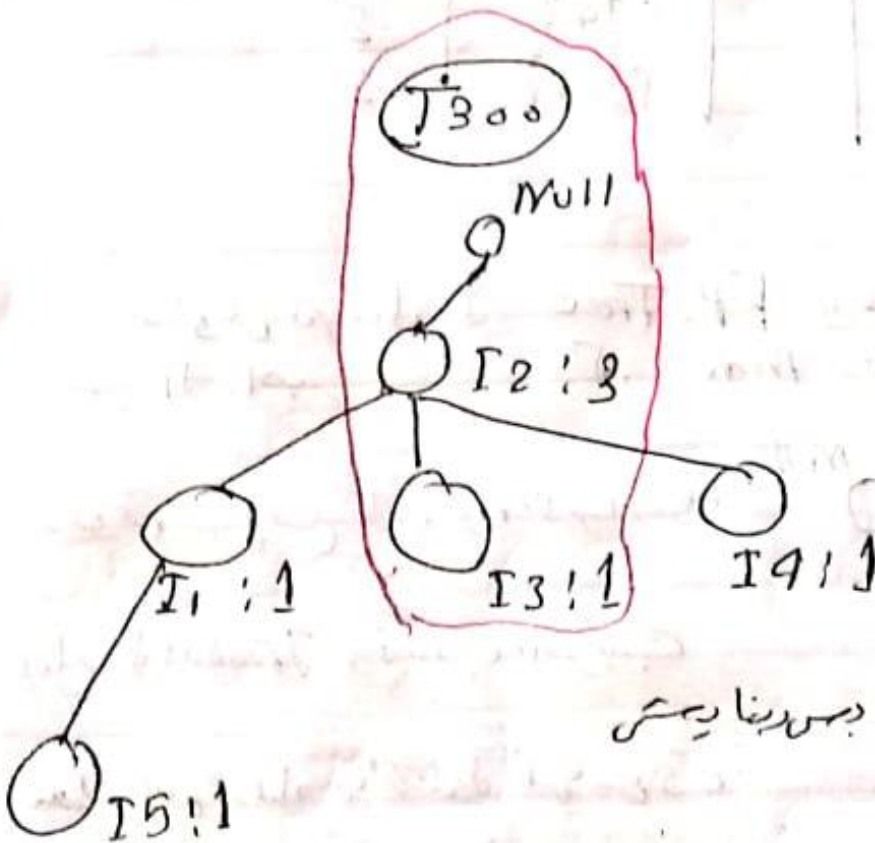 T300
Null
I2:3
I1:1
I3:1
I4:1
I5:1